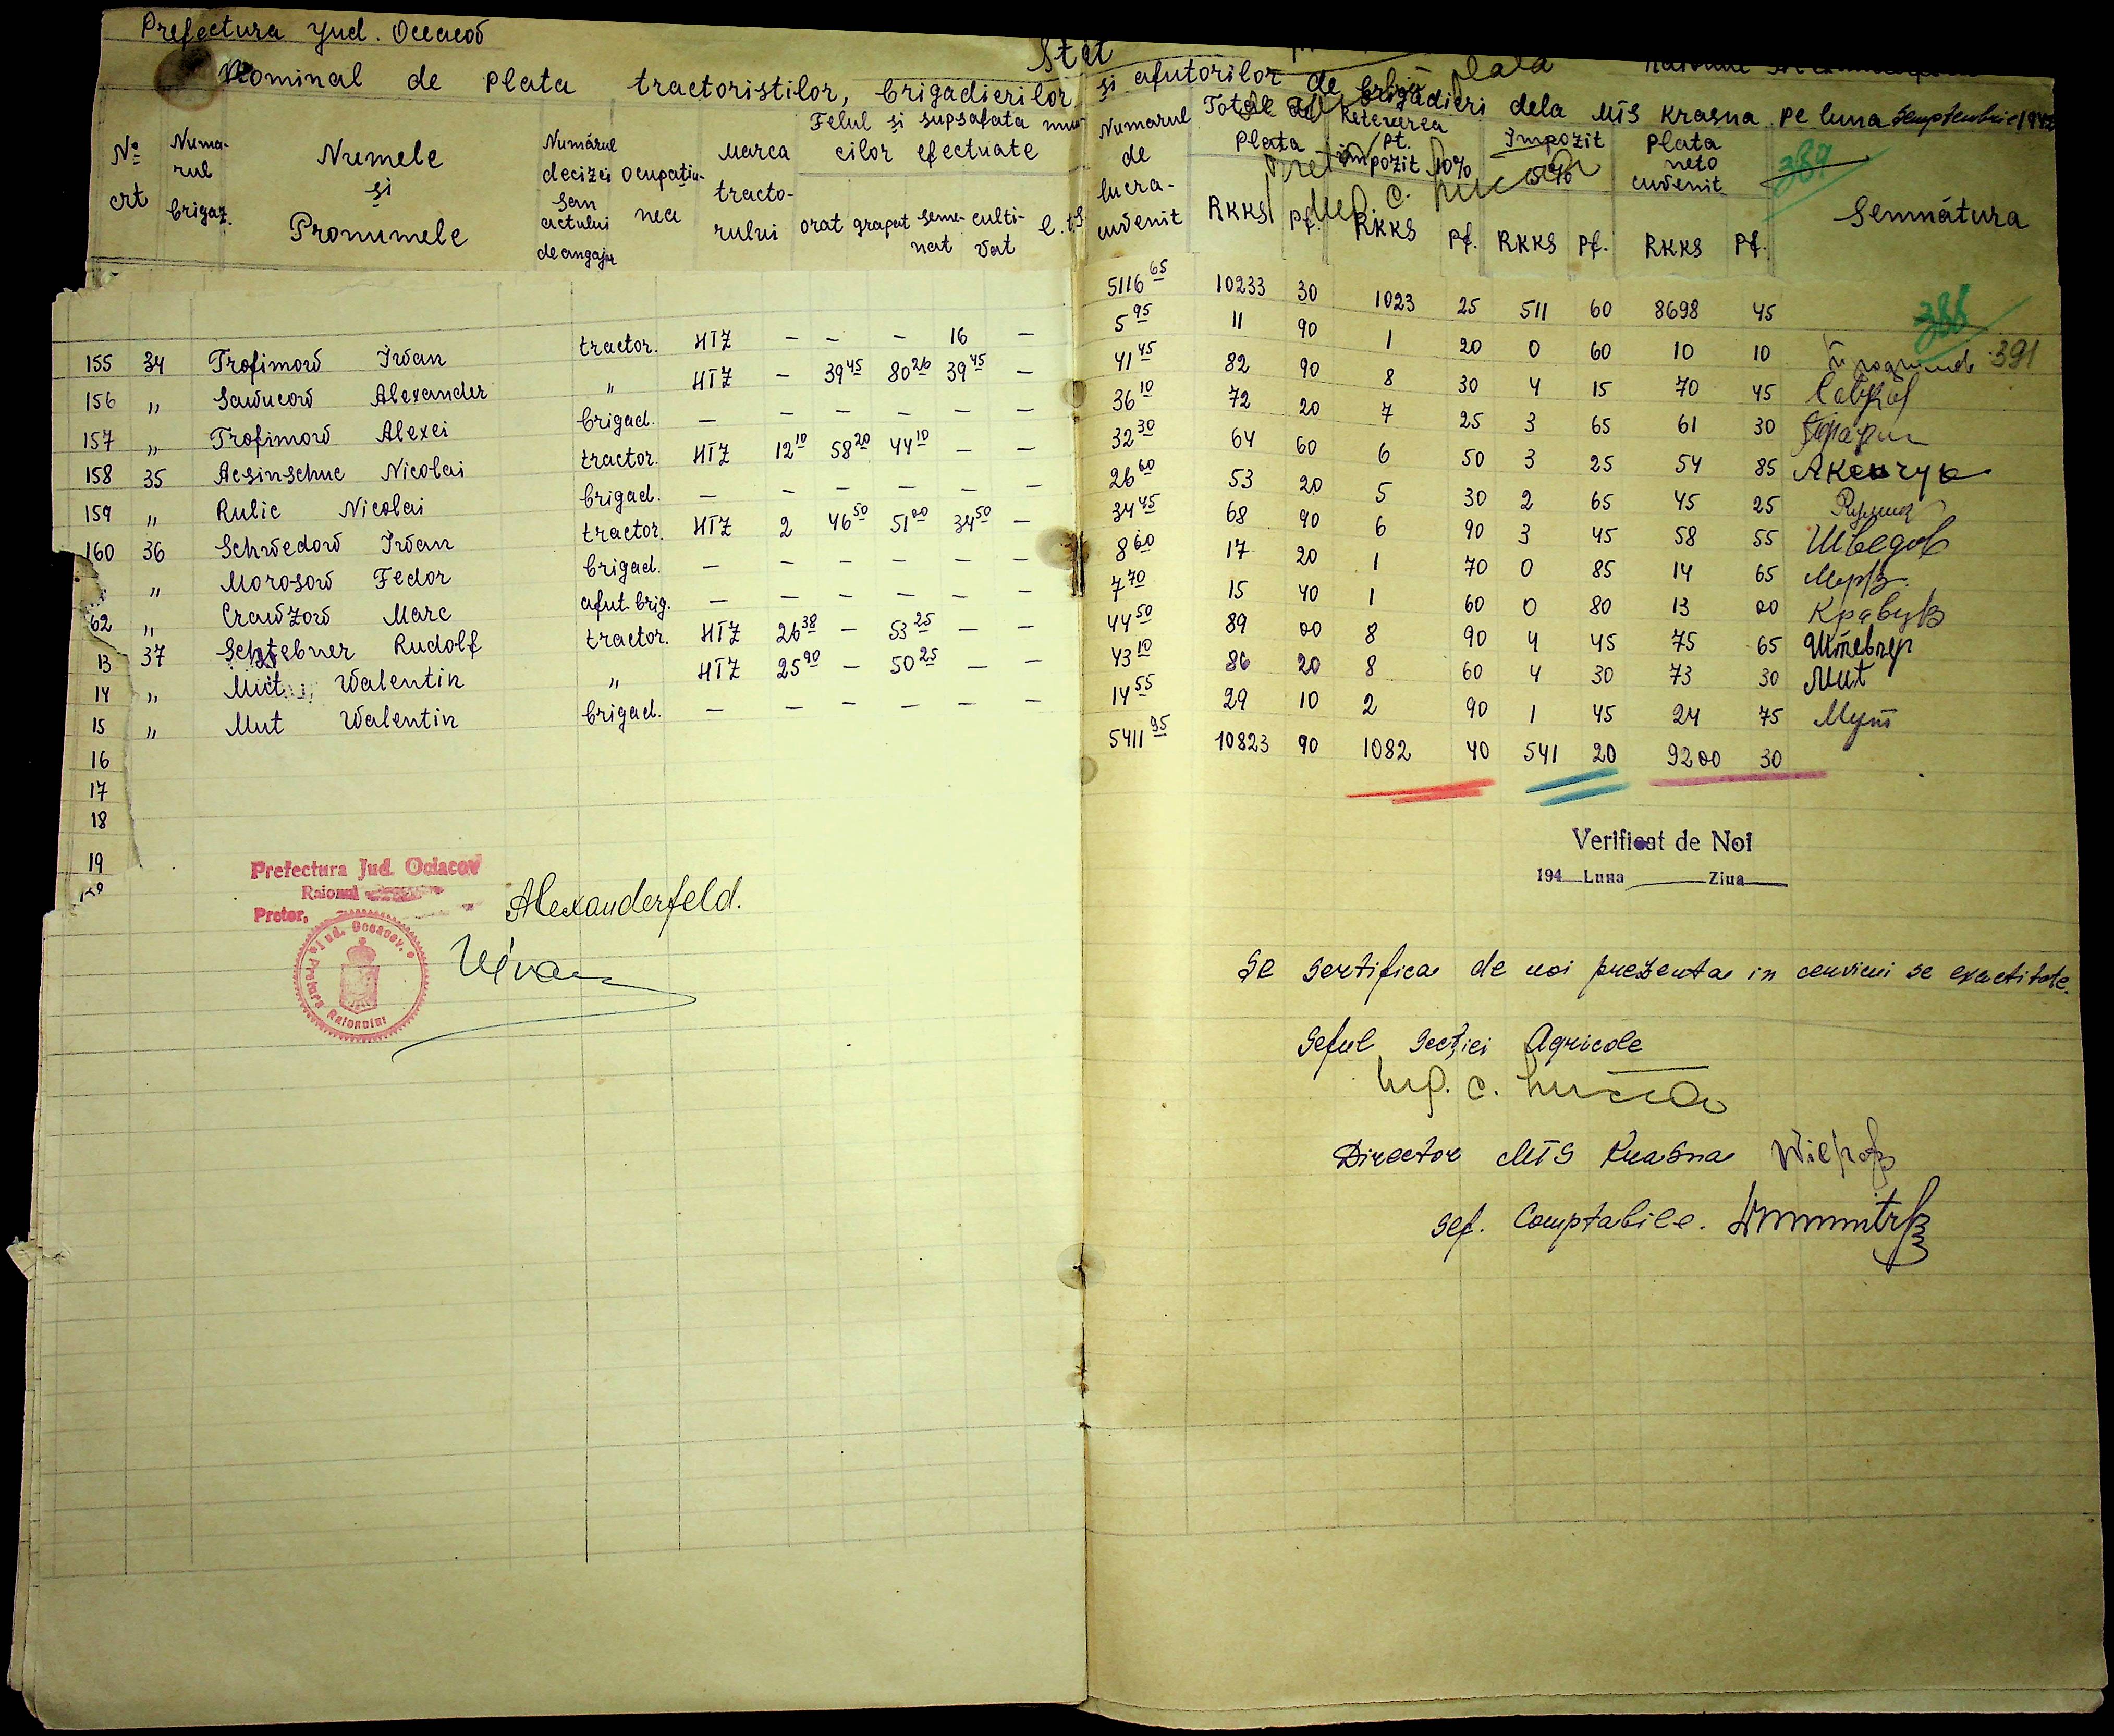 Prefectura Jud. Oceacov
Stat
Nominal de plata tractoristilor, brigadierilor și afutorilor de brigadieri dela MTS Krasna pe luna Septembrie 1942
№ crt
Numarul brigaz.
Numele și Pronumele
Numărul decizei sau actului de angajar
Ocupațiunea
Marca tractorului
Felul și supsafata muncilor efectuate
orat grapat semenat cultivat
Numarul de lucra- cuvenit
Total
Plata RKKS Pf.
Retenerea pt. impozit 10% RKKS Pf.
Impozit 5% RKKS Pf.
Plata neto cuvenit RKKS Pf.
Semnătura
389
5116 65 10233 30 1023 25 511 60 8698 45
388
391
155 34 Trofimow Iwan tractor. HTZ — — — 16 — 5 95 11 90 1 20 0 60 10 10
156 " Sawucow Alexander " HTZ — 39 45 80 26 39 45 — 41 45 82 90 8 30 4 15 70 45
157 " Trofimow Alexei brigad. — — — — — — 36 10 72 20 7 25 3 65 61 30
158 35 Acsinschuc Nicolai tractor. HTZ 12 10 58 20 44 10 — — 32 30 64 60 6 50 3 25 54 85
159 " Rulic Nicolai brigad. — — — — — — 26 60 53 20 5 30 2 65 45 25
160 36 Schwedow Iwan tractor. HTZ 2 46 50 51 00 34 50 — 34 45 68 90 6 90 3 45 58 55 Шведов
" Morosow Fedor brigad. — — — — — — 8 60 17 20 1 70 0 85 14 65
62 " Crawzow Marc afut. brig. — — — — — — 7 70 15 40 1 60 0 80 13 00
13 37 Schtebner Rudolf tractor. HTZ 26 38 — 53 25 — — 44 50 89 00 8 90 4 45 75 65 Штебнер
14 " Mut Walentin " HTZ 25 90 — 50 25 — — 43 10 86 20 8 60 4 30 73 30 Mut
15 " Mut Walentin brigad. — — — — — — 14 55 29 10 2 90 1 45 24 75 Мут
16 5411 95 10823 90 1082 40 541 20 9200 30
17
18
19
Verificat de Noi
194 Luna Ziua
Prefectura Jud. Ociacov
Raionul
Pretor,
Alexanderfeld.
Jud. Oceacov. Pretura Raionului
Se sertifica de noi prezenta in cuvieni se exactitate.
Seful Secției Agricole
Director MTS Krasna
Sef. Comptabile.